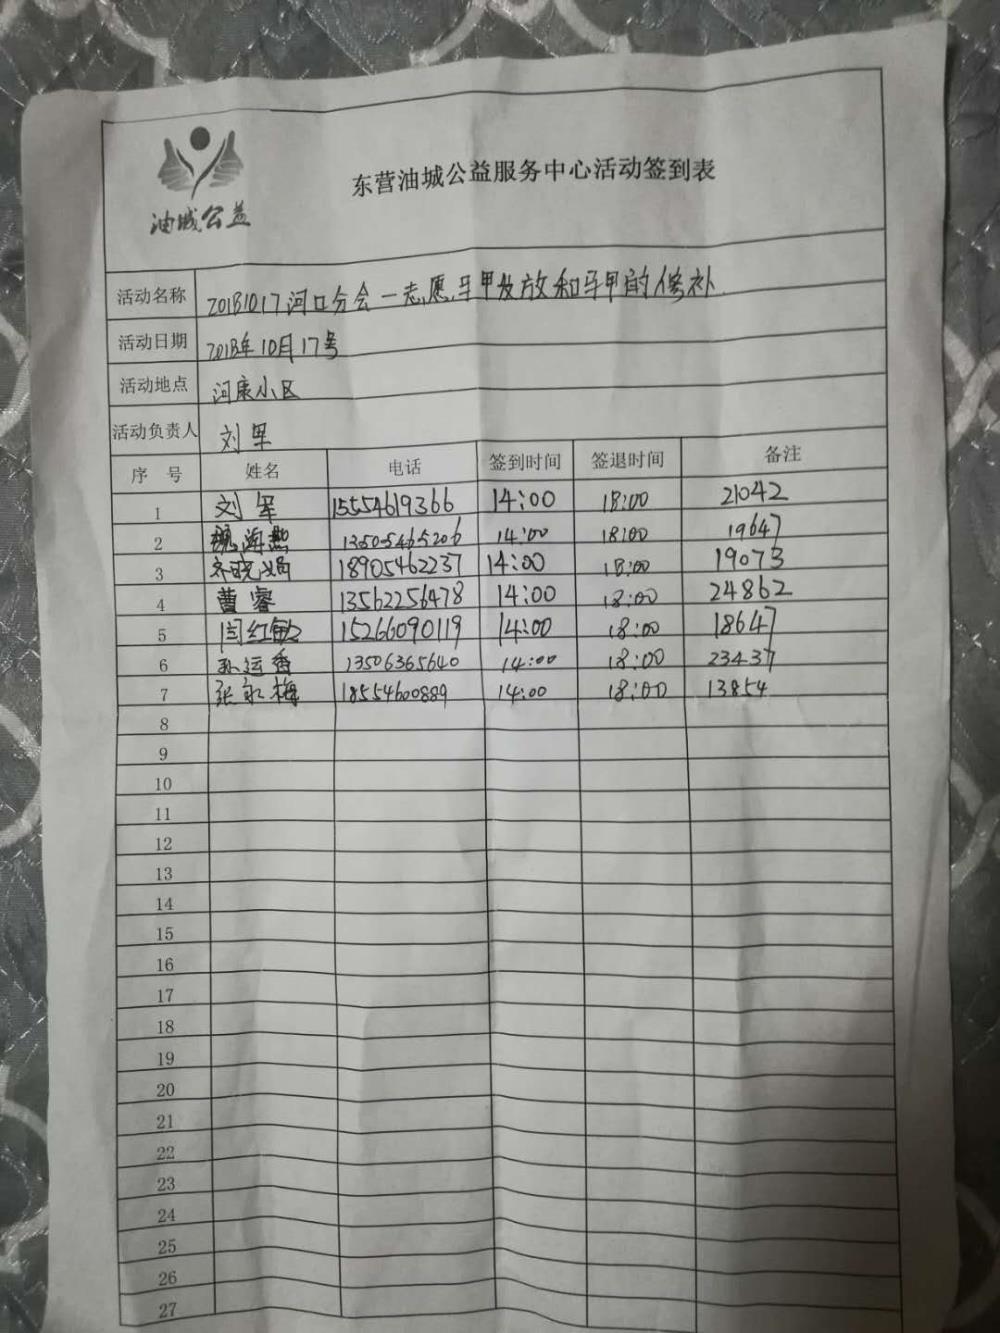 油城公益
东营油城公益服务中心活动签到表
活动名称 20181017河口分会一志愿马甲发放和马甲的修补
活动日期 2018年10月17号
活动地点 河康小区
活动负责人 刘军
序号 姓名 电话 签到时间 签退时间 备注
1 刘军 15554619366 14:00 18:00 21042
2 魏海燕 13505465206 14:00 18:00 19647
3 齐晓娟 18905462237 14:00 18:00 19073
4 曹睿 13562256478 14:00 18:00 24862
5 闫红敏 15266090119 14:00 18:00 18647
6 孙运香 13506365640 14:00 18:00 23437
7 张永梅 18554600889 14:00 18:00 13854
8
9
10
11
12
13
14
15
16
17
18
19
20
21
22
23
24
25
26
27